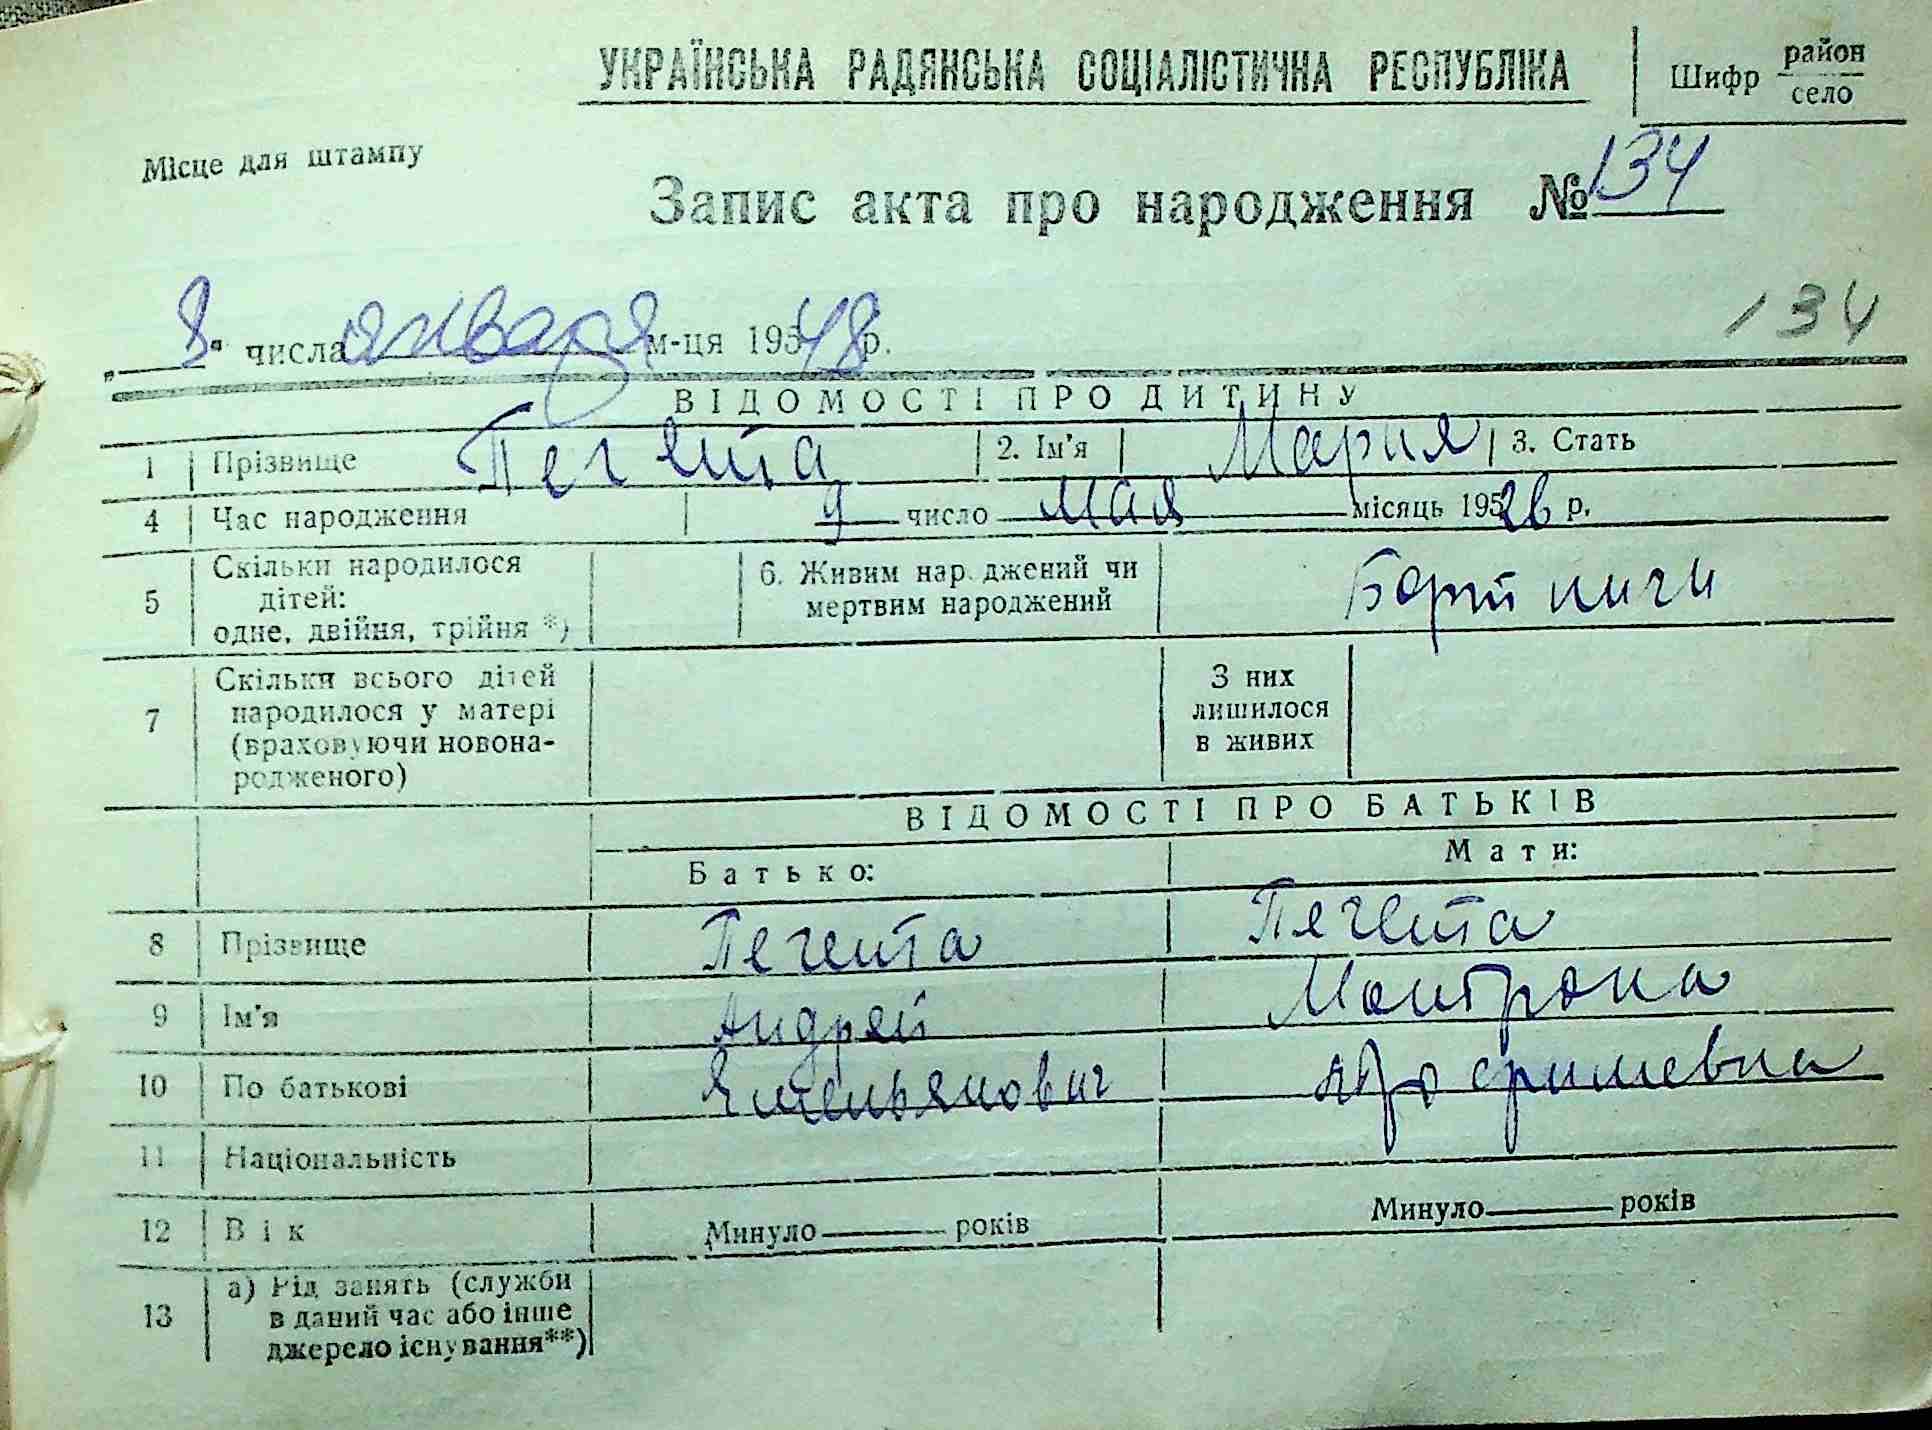 УКРАЇНСЬКА РАДЯНСЬКА СОЦІАЛІСТИЧНА РЕСПУБЛІКА
Шифр район
село
Місце для штампу
Запис акта про народження № 134
134
„ 8 " числа января м-ця 195 48 р.
ВІДОМОСТІ ПРО ДИТИНУ
1 Прізвище 2. Ім'я Мария 3. Стать
4 Час народження 9 число мая місяць 195 26 р.
5 Скільки народилося
дітей:
одне, двійня, трійня *)
6. Живим нар джений чи
мертвим народжений
Бортничи
7 Скільки всього дітей
народилося у матері
(враховуючи новона-
родженого)
З них
лишилося
в живих
ВІДОМОСТІ ПРО БАТЬКІВ
Батько: Мати:
8 Прізвище
9 Ім'я Андрей
10 По батькові
11 Національність
12 Вік Минуло ____ років Минуло ____ років
13 а) Рід занять (служби
в даний час або інше
джерело існування**)